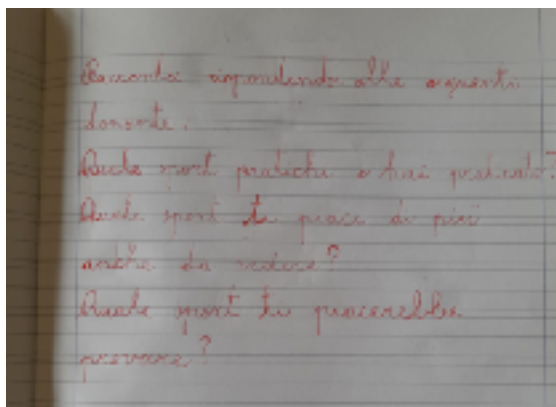 Racconta rispondendo alle seguenti
domande.
Quale sport pratichi o hai praticato?
Quale sport ti piace di più
anche da vedere?
Quale sport ti piacerebbe
provare?